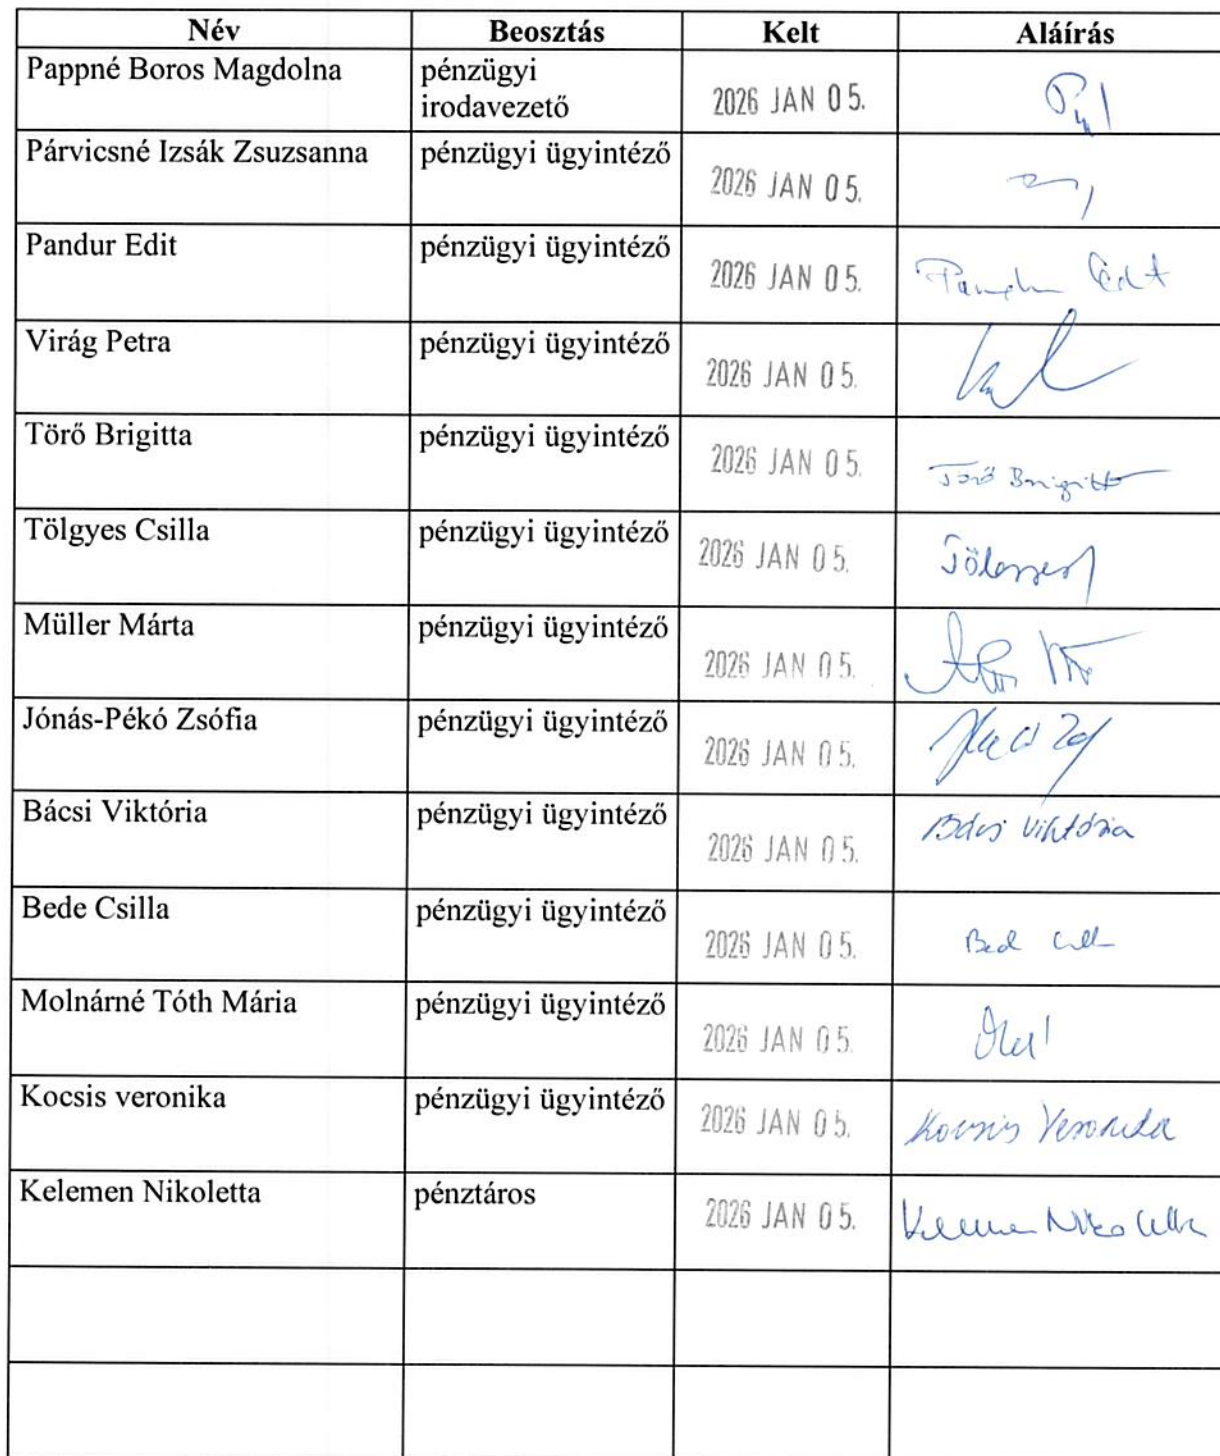 Név Beosztás Kelt Aláírás
Pappné Boros Magdolna pénzügyi
irodavezető 2026 JAN 05.
Párvicsné Izsák Zsuzsanna pénzügyi ügyintéző 2026 JAN 05.
Pandur Edit pénzügyi ügyintéző 2026 JAN 05.
Virág Petra pénzügyi ügyintéző 2026 JAN 05.
Törő Brigitta pénzügyi ügyintéző 2026 JAN 05. Törő Brigitta
Tölgyes Csilla pénzügyi ügyintéző 2026 JAN 05.
Müller Márta pénzügyi ügyintéző 2026 JAN 05.
Jónás-Pékó Zsófia pénzügyi ügyintéző 2026 JAN 05.
Bácsi Viktória pénzügyi ügyintéző 2026 JAN 05. Bácsi Viktória
Bede Csilla pénzügyi ügyintéző 2026 JAN 05.
Molnárné Tóth Mária pénzügyi ügyintéző 2026 JAN 05.
Kocsis veronika pénzügyi ügyintéző 2026 JAN 05. Kocsis Veronika
Kelemen Nikoletta pénztáros 2026 JAN 05. Kelemen Nikoletta